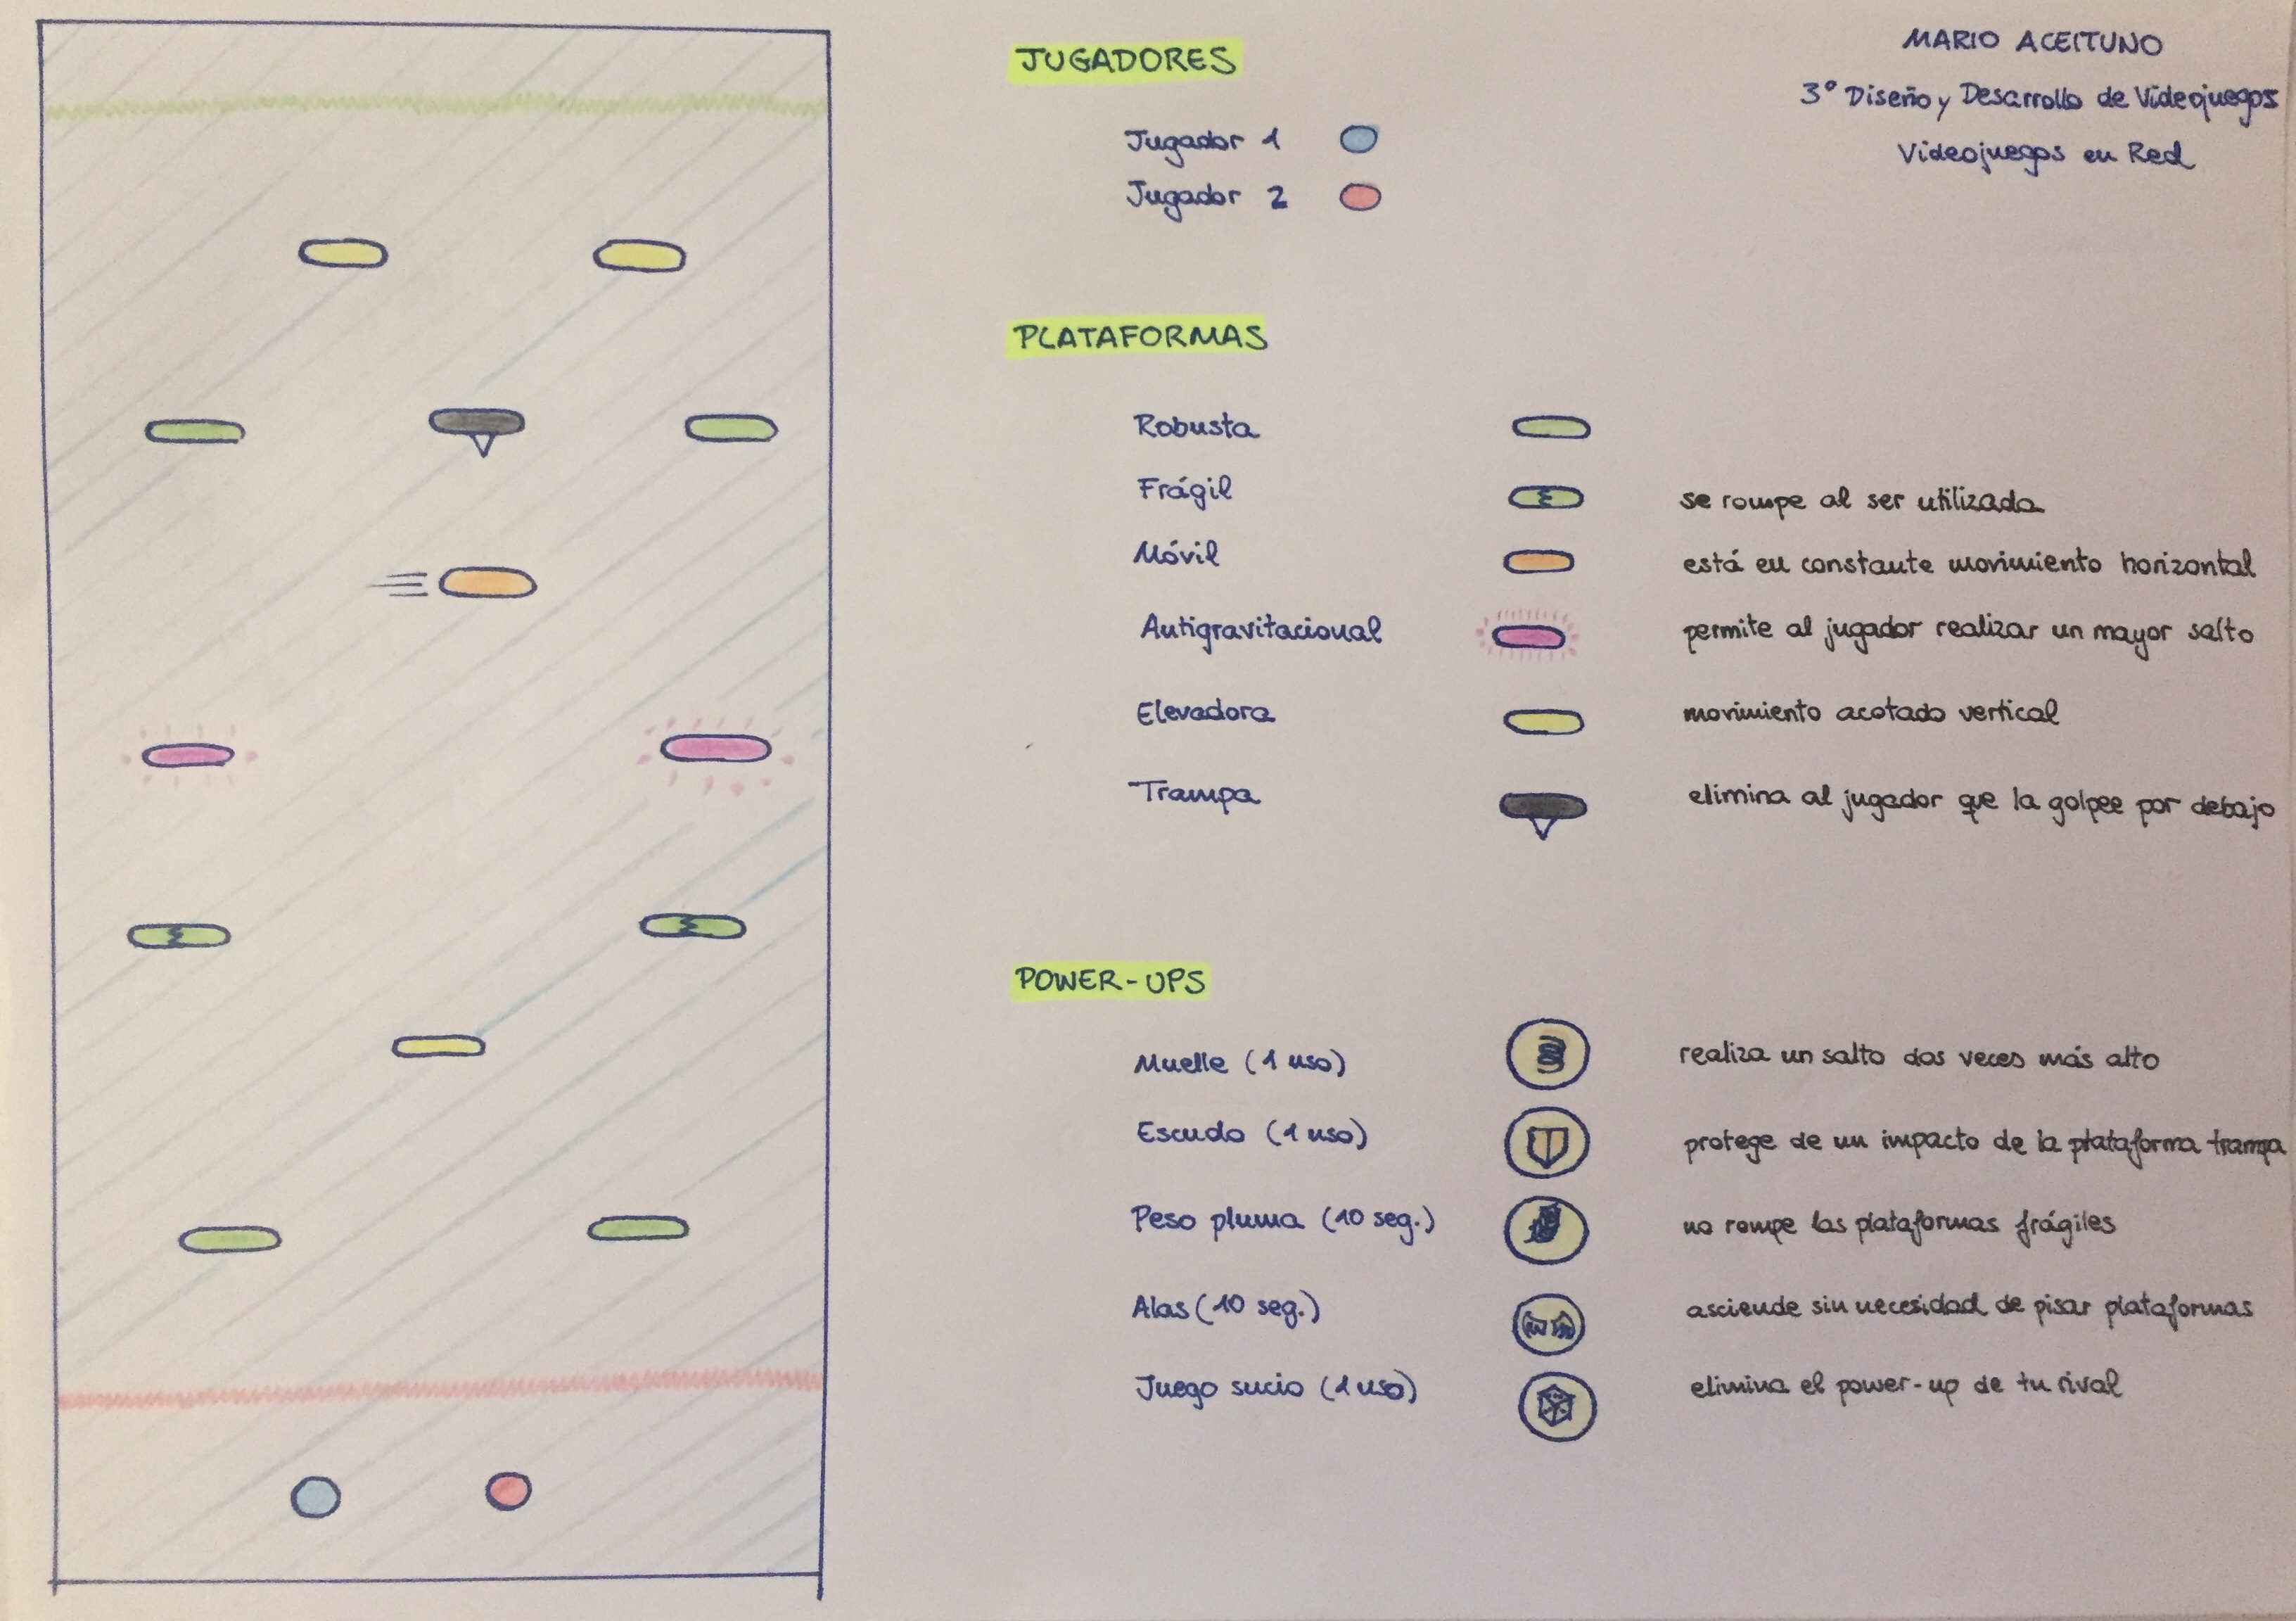 MARIO ACEITUNO
3º Diseño y Desarrollo de Videojuegos
Videojuegos en Red
JUGADORES
Jugador 1
Jugador 2
PLATAFORMAS
Robusta
Frágil se rompe al ser utilizada
Móvil está en constante movimiento horizontal
Antigravitacional permite al jugador realizar un mayor salto
Elevadora movimiento acotado vertical
Trampa elimina al jugador que la golpee por debajo
POWER-UPS
Muelle (1 uso) realiza un salto dos veces más alto
Escudo (1 uso) protege de un impacto de la plataforma trampa
Peso pluma (10 seg.) no rompe las plataformas frágiles
Alas (10 seg.) asciende sin necesidad de pisar plataformas
Juego sucio (1 uso) elimina el power-up de tu rival